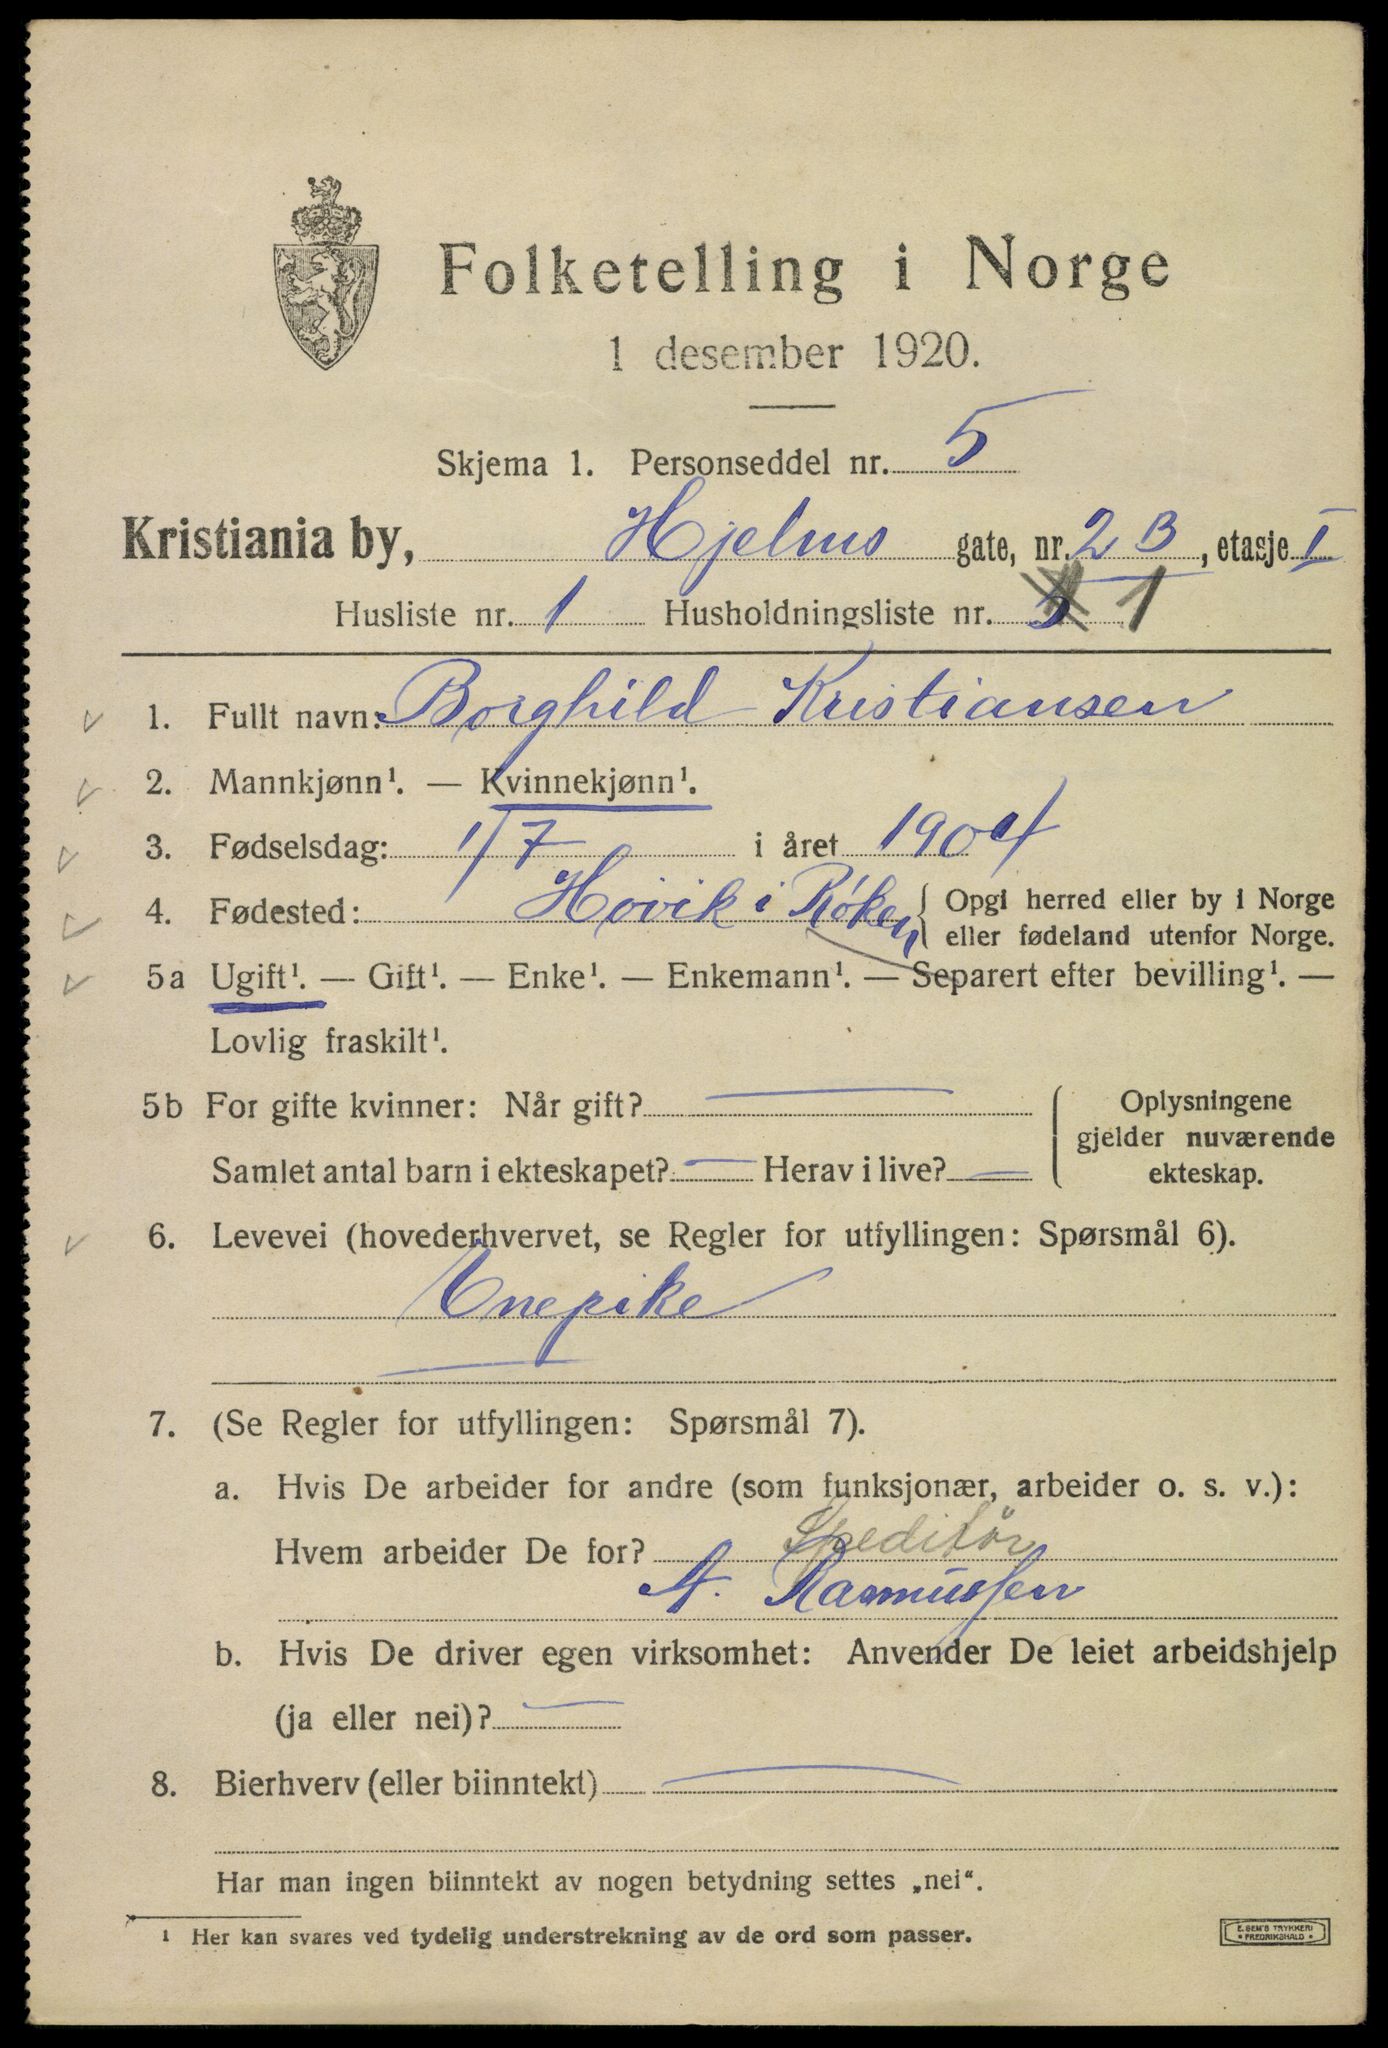 Folketelling i Norge
1 desember 1920.
Skjema 1. Personseddel nr. 5
Kristiania by, Hjelms gate, nr. 2 B, etasje I
Husliste nr. 1 Husholdningsliste nr. 5 1
1. Fullt navn: Borghild Kristiansen
2. Mannkjønn¹. — Kvinnekjønn¹.
3. Fødselsdag: 1/7 i året 1904
4. Fødested: Høvik i Røken { Opgi herred eller by i Norge
eller fødeland utenfor Norge.
5a Ugift¹. — Gift¹. — Enke¹. — Enkemann¹. — Separert efter bevilling¹. —
Lovlig fraskilt¹.
5b For gifte kvinner: Når gift? —
Samlet antal barn i ekteskapet? — Herav i live? —
{ Oplysningene
gjelder nuværende
ekteskap.
6. Levevei (hovederhvervet, se Regler for utfyllingen: Spørsmål 6).
Enepike
7. (Se Regler for utfyllingen: Spørsmål 7).
a. Hvis De arbeider for andre (som funksjonær, arbeider o. s. v.):
Hvem arbeider De for? Speditør
A. Rasmussen
b. Hvis De driver egen virksomhet: Anvender De leiet arbeidshjelp
(ja eller nei)? —
8. Bierhverv (eller biinntekt) —
Har man ingen biinntekt av nogen betydning settes „nei“.
¹ Her kan svares ved tydelig understrekning av de ord som passer.
E. SEM'S TRYKKERI
• FREDRIKSHALD •